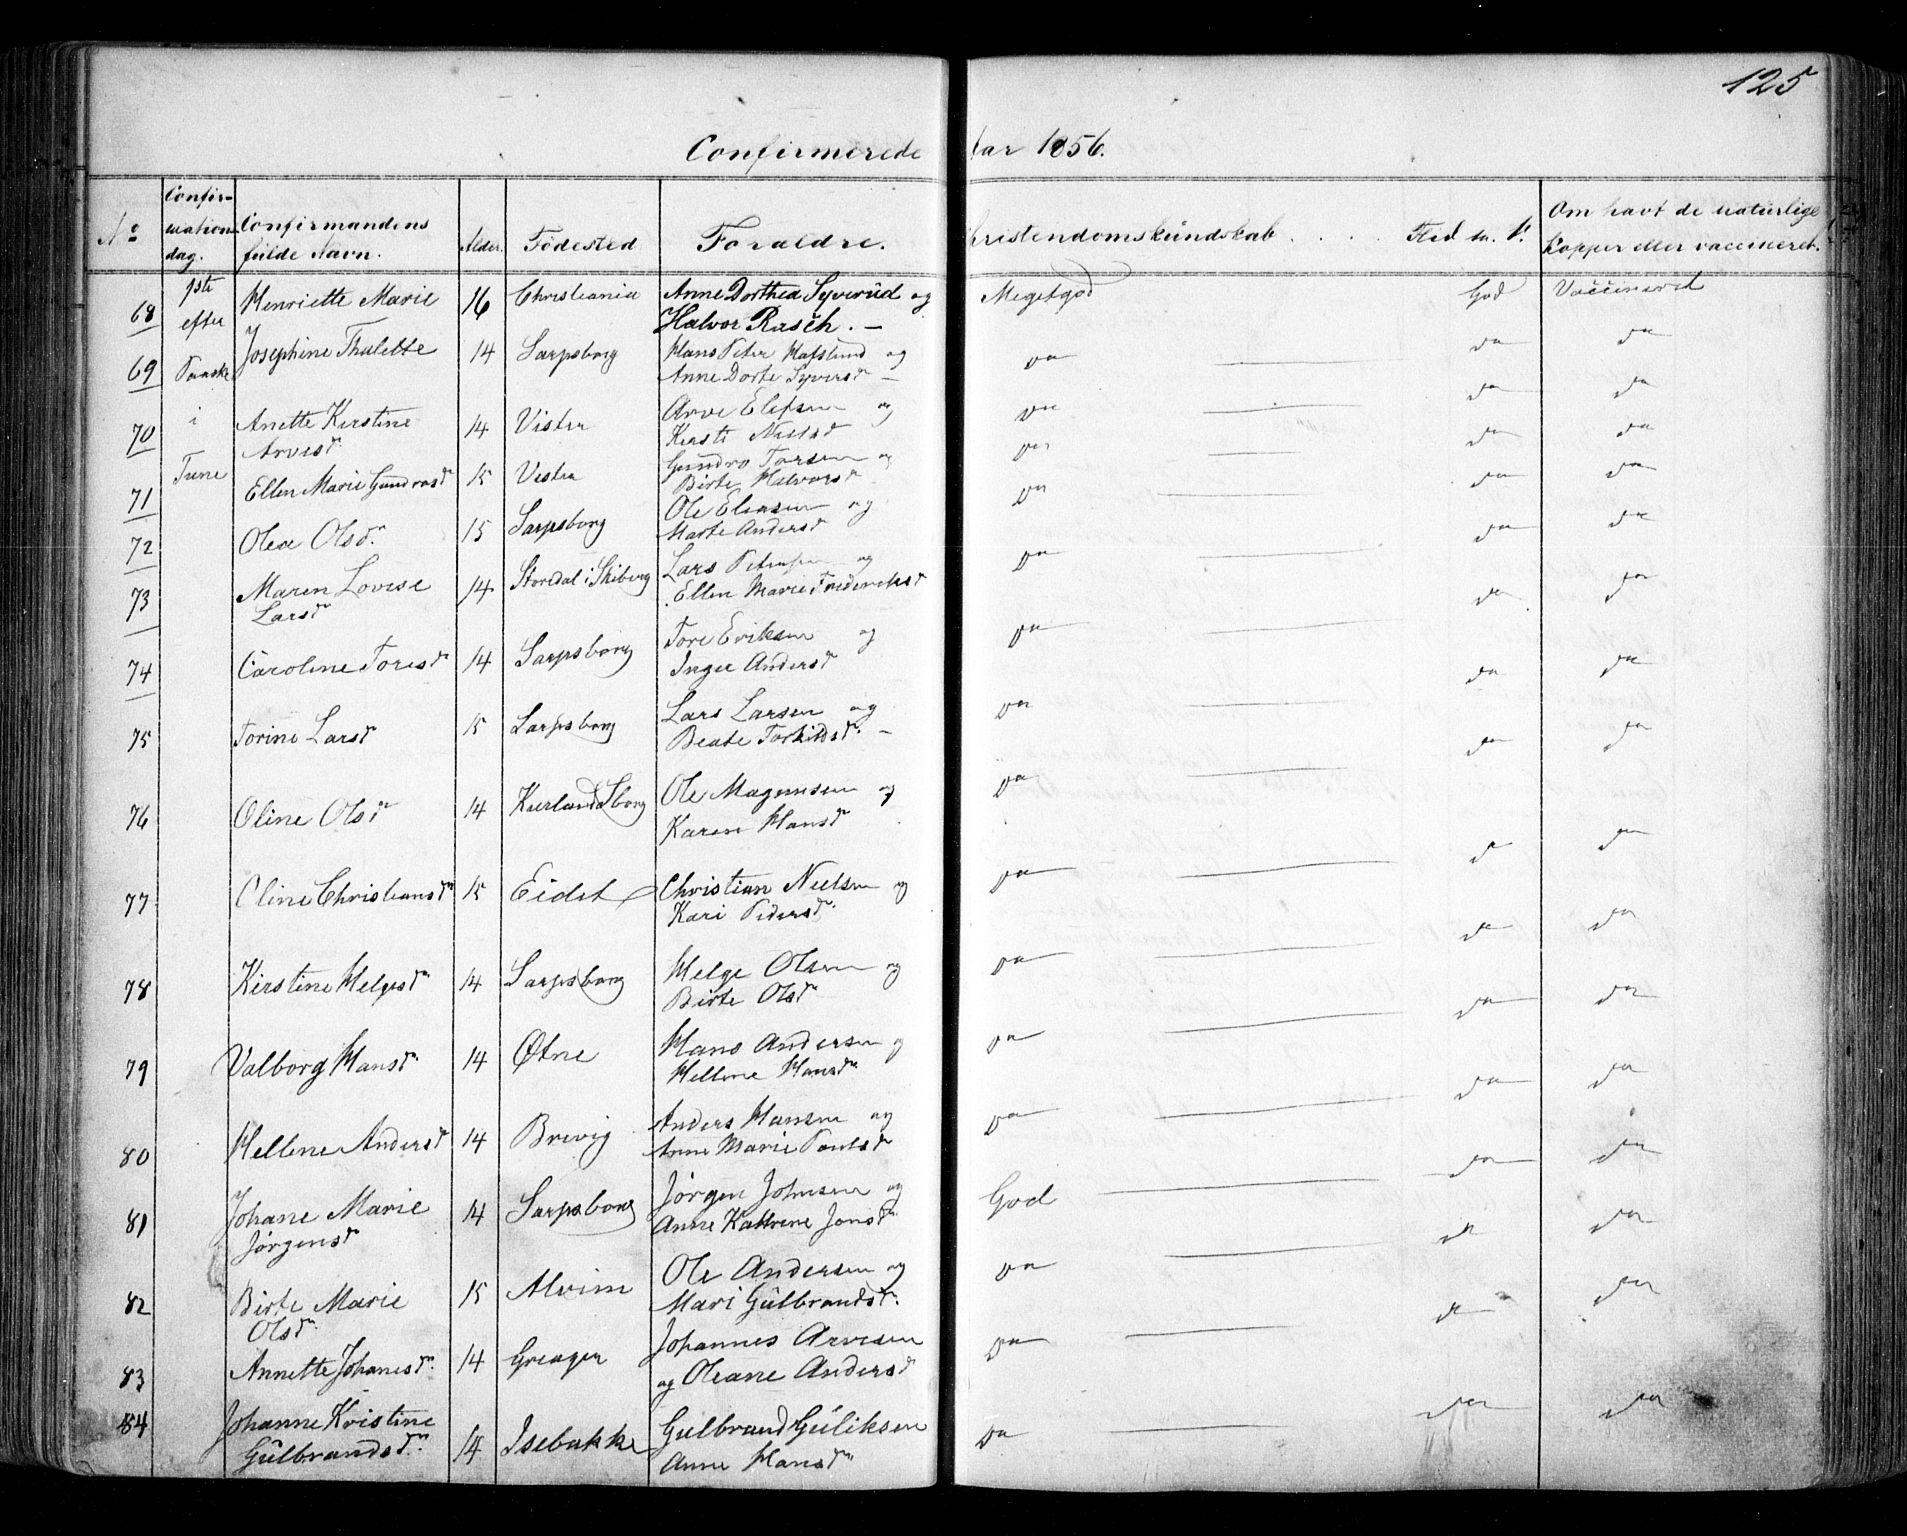 125
Confirmerede Aar 1856.
No Confirmations dag. Confirmandens fulde Navn. Alder. Födested Foraldre. Christendomskundskab . . . . Flid m. V. Om havt de naturlige Kopper eller vaccineret.
68 1ste efter Henriette Marie 16 Christiania Anne Dorthea Syverud og Meget god God Vaccineret
Halvor Rasch. —
69 Paaske Josephine Thalette 14 Sarpsborg Hans Peter Hafslund og do — do do
Anne Dorte Syversd —
70 i Anette Kirstine 14 Vister Arve Elefsen og do — do do
Arvesdr Kersti Nilsd
71 Tune Ellen Marie Gundrosdr 15 Vister Gundro Torsen og do — do do
Birte Halvorsdr
72 Olea Olsdr 15 Sarpsborg Ole Eliasen og do — do do
Marte Andersd
73 Maren Lovise 14 Storedal i Skiberg Lars Petersen og do — do do
Larsdr Ellen Marie Frederiksd
74 Caroline Toresdr 14 Sarpsborg Tore Eriksen og do — do do
Inger Andersd
75 Torine Larsdr 15 Sarpsborg Lars Larsen og do — do do
Beate Torkildsdr. —
76 Oline Olsdr 14 Kurland Sborg Ole Magnussen og do — do do
Karen Hansdr
77 Oline Christiansdr 15 Eidet Christian Nielsen og do — do do
Kari Pedersdr
78 Kirstine Helgesdr 14 Sarpsborg Helge Olsen og do — do do
Birte Olsdr
79 Valborg Hansdr 14 Otne Hans Andersen og do — do do
Hellene Hansdr
80 Hellene Andersdr 14 Brevig Anders Hansen og do — do do
Anne Marie Paulsdr
81 Johane Marie 14 Sarpsborg Jørgen Johnsen og God — do do
Jørgensdr Anne Kathrine Jonsdr
82 Birte Marie 15 Alvim Ole Andersen og do — do do
Olsdr Mari Gulbrandsdr.
83 Annette Johanesdr. 14 Greager Johannes Arvesen do — do do
og Oleane Andersdr
84 Johanne Kristine 14 Isebakke Gulbrand Guliksen do — do do
Gulbrandsdr Anne Hansdr